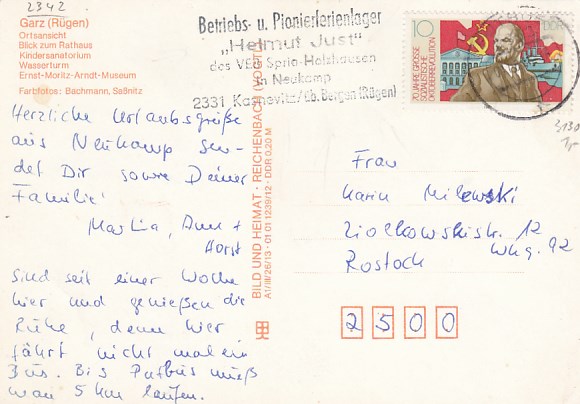 2342
Garz (Rügen)
Ortsansicht
Blick zum Rathaus
Kindersanatorium
Wasserturm
Ernst-Moritz-Arndt-Museum
Farbfotos: Bachmann, Saßnitz
Betriebs- u. Pionierferienlager
„Helmut Just"
des VEB Spria-Holzhausen
in Neukamp
2331 Kasnevitz/üb. Bergen (Rügen)
10
DDR
70 JAHRE GROSSE
SOZIALISTISCHE
OKTOBERREVOLUTION
Herzliche Urlaubsgrüße
aus Neukamp sen-
det Dir sowie Deiner
Familie
Marlia, Anne +
Horst
Sind seit einer Woche
hier und genießen die
Ruhe, denn hier
fährt nicht mal ein
Bus. Bis Putbus muß
man 5 km laufen.
BILD UND HEIMAT · REICHENBACH (VOGTL)
A1/III/26/13 · 01 01 1239/12 · DDR 0,20 M
Frau
Karin Milewski
Ziolkowskistr. 12
Whg. 92
Rostock
2500